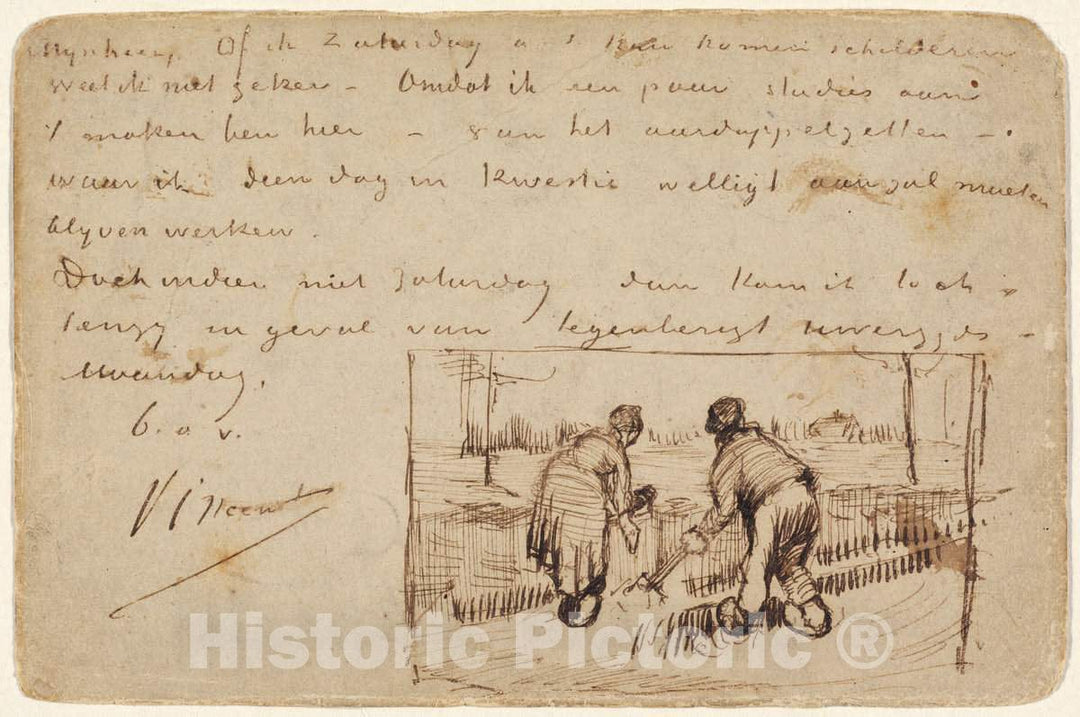 Mynheer, Of ik Zaturdag a s kan komen schilderen
weet ik niet zeker – Omdat ik een paar studies aan
't maken ben hier – van het aardappelzetten –.
waar ik dien dag in kwestie welligt aan zal moeten
blyven werken.
Doch indien niet Zaturdag dan kom ik toch
tenzy in geval van tegenberigt uwerzyds –
Maandag.
b. a. v.
Vincent
Historic Pictoric ®